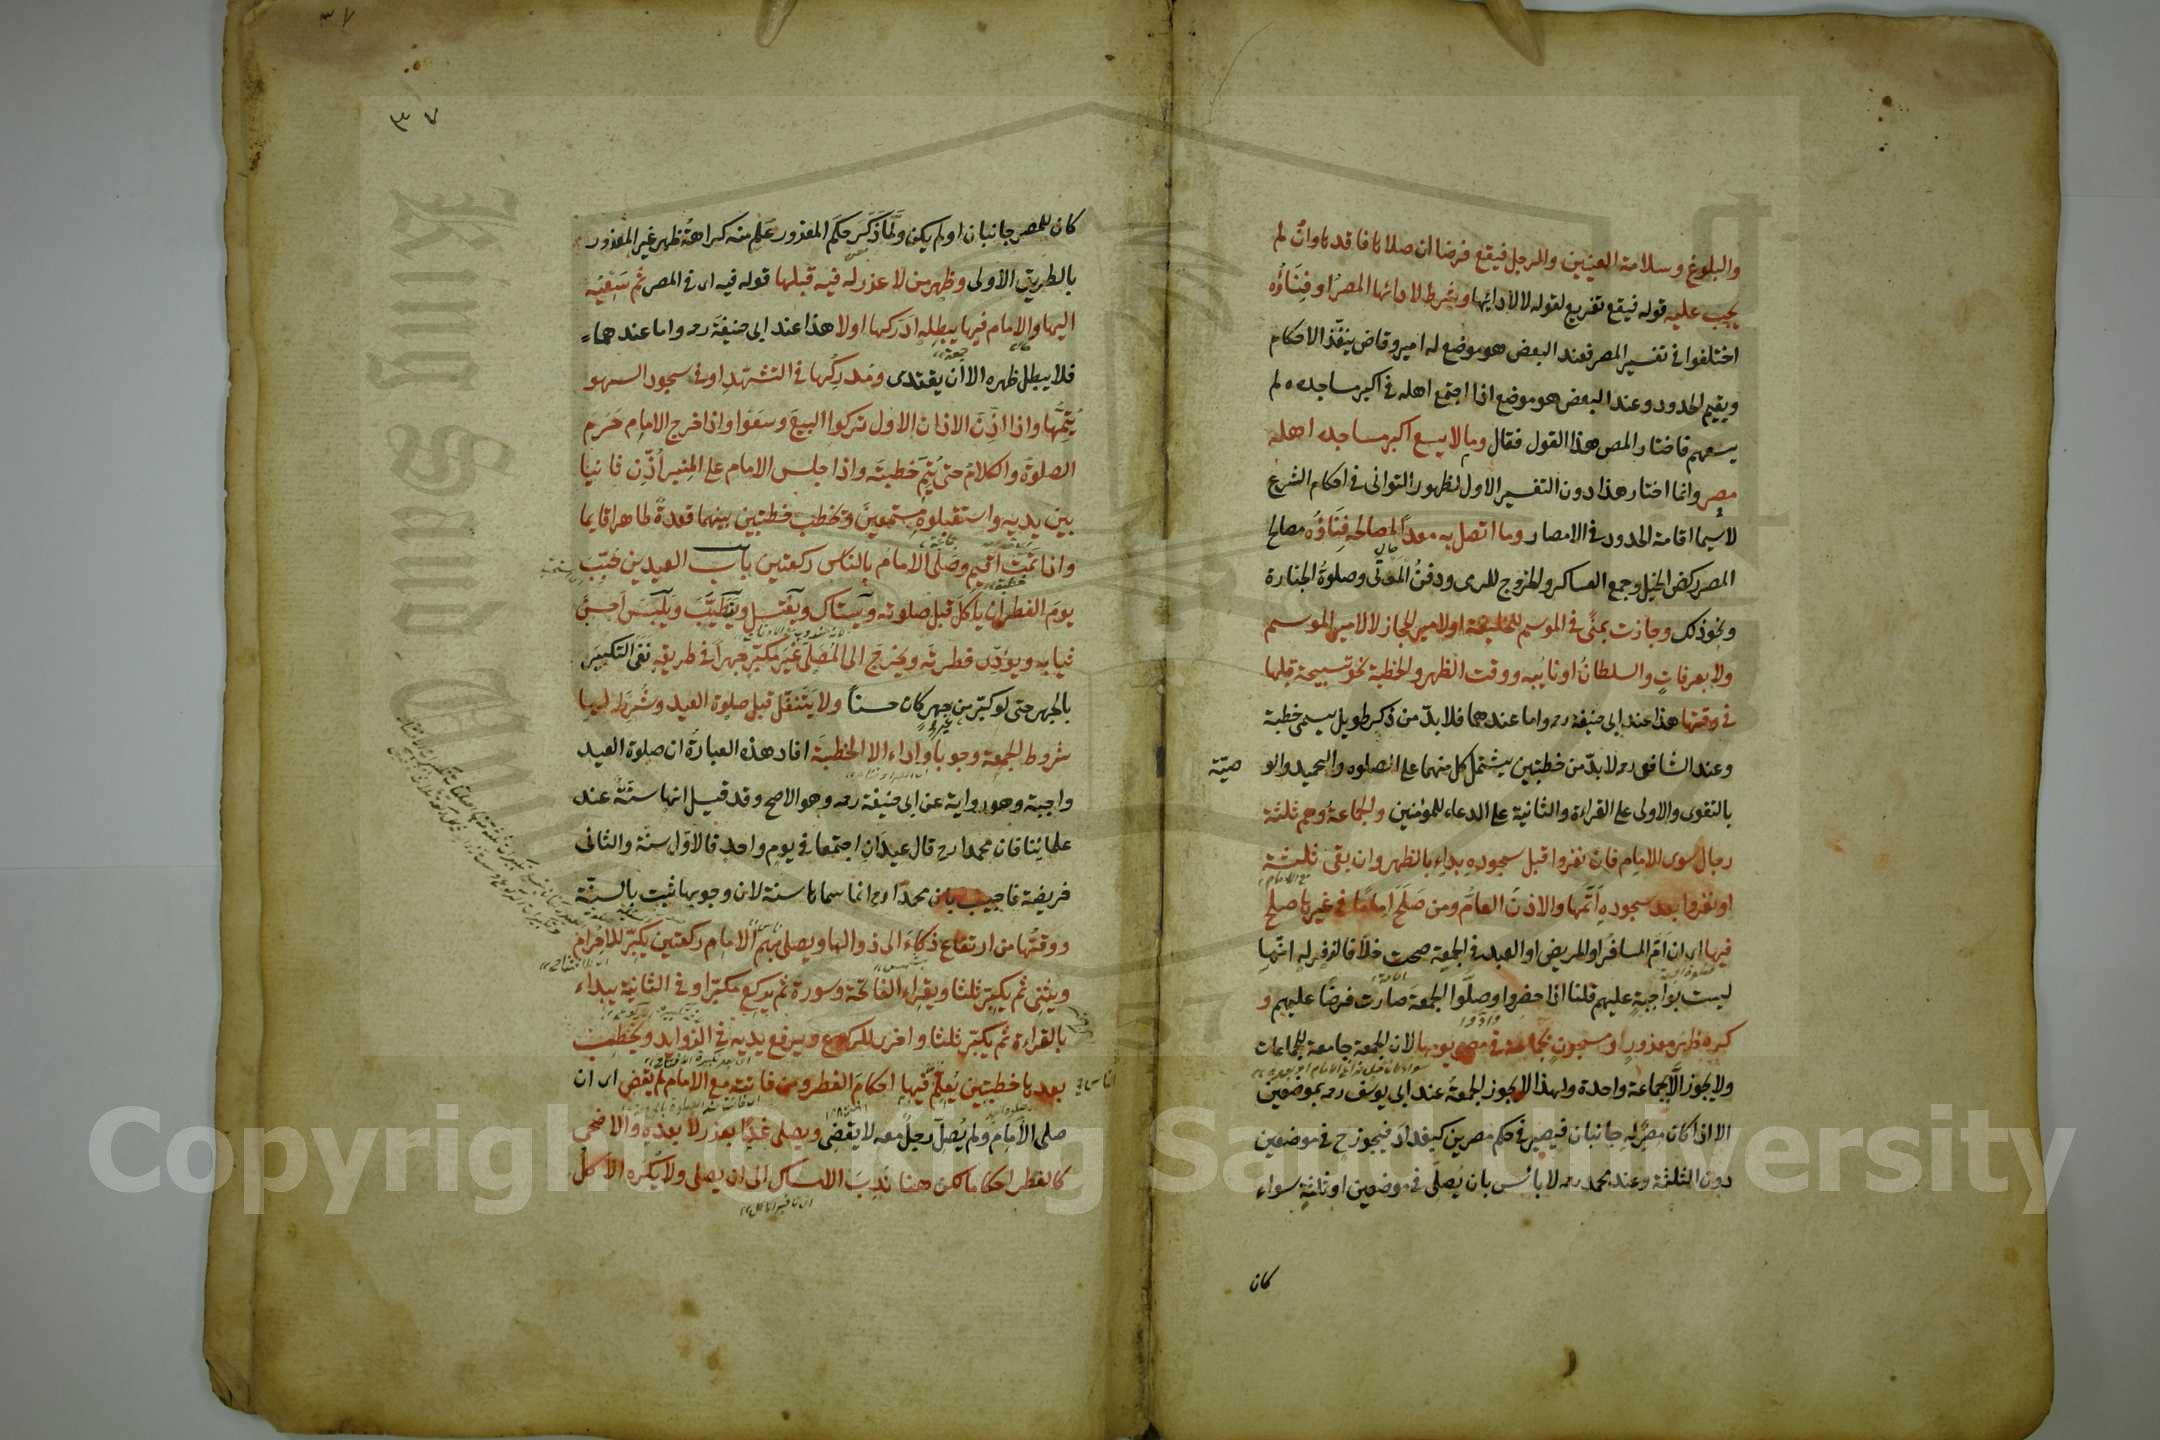 والبلوغ وسلامة العينين والرجل فيقع فرضا ان صلاها فاقدها وان لم
يجب عليه قوله فيقع تفريع لقوله لا لادائها وشرط لادائها المصر او فناؤه
اختلفوا في تفسير المصر فعند البعض هو موضع له امير وقاض ينفذ الاحكام
ويقيم الحدود وعند البعض هو موضع اذا اجتمع اهله في اكبر مساجده لم
يسعهم فاختار المص هذا القول فقال وما لا يسع اكبر مساجده اهله
مصر وانما اختار هذا دون التفسير الاول لظهور التواني في احكام الشرع
لاسيما اقامة الحدود في الامصار وما اتصل به معدا لمصالحه فناؤه مصالح
المصر ركض الخيل وجمع العساكر والخروج للرمي ودفن الموتى وصلوة الجنازة
ونحو ذلك وجازت بمنى في الموسم للخليفة او لامير الحجاز لا لامير الموسم
ولا بعرفات والسلطان او نايبه ووقت الظهر والخطبة نحو تسبيحة قبلها
في وقتها هذا عند ابي حنيفة رحه واما عندهما فلا بد من ذكر طويل يسمى خطبة
وعند الشافعي رحه لا بد من خطبتين يشتمل كل منهما على الصلوه والتحميد والو صيّة
بالتقوى والاولى على القراءة والثانية على الدعاء للمؤمنين والجماعة وهم ثلثة
رجال سوى للامام فان نفروا قبل سجوده بداء بالظهر وان بقى ثلثة
او نفروا بعد سجوده اتمها والاذن العام ومن صلح اماما في غيرها صلح
فيها اى ان ام المسافر او المريض او العبد في الجمعة صحت خلافا لزفر له انها
ليست بواجبة عليهم قلنا اذا حضروا وصلوا الجمعة صارت فرضا عليهم و
كره ظهر معذور او مسجون بجماعة في مصر يومها لان الجمعة جامعة للجماعات
ولا يجوز الا بجماعة واحدة ولهذا لا يجوز الجمعة عند ابي يوسف رحه بموضعين
الا اذا كان مصر له جانبان فيصير في حكم مصرين كبغداد فيجوز ح في موضعين
دون الثلثة وعند محمد رحه لا بائس بان يصلى في موضعين او ثلثة سواء
كان
٣٧
٣٧
كان للمصر جانبان او لم يكن ولما ذكر حكم المعذور علم منه كراهة ظهر غير المعذور
بالطريق الاولى وظهر من لا عذر له فيه قبلها قوله فيه اى في المصر ثم سعيه
اليها والامام فيها يبطله ادركها اولا هذا عند ابي حنيفة رحه واما عندهما
فلا يبطل ظهره الا ان يقتدى ومدركها في التشهد او في سجود السهو
يتمها واذا اذن الاذان الاول تركوا البيع وسعوا واذا خرج الامام حرم
الصلوة والكلام حتى يتم خطبته واذا جلس الامام على المنبر اذن ثانيا
بين يديه واستقبلوه مستمعين وتخطب خطبتين بينهما قعدة طاهرا قايما
واذا تمت اقيم وصلى الامام بالناس ركعتين باب العيدين حبب
يوم الفطر ان ياكل قبل صلوته ويستاك ويغتسل ويتطيب ويلبس احسن
ثيابه ويؤدى فطرته ويخرج الى المصلى غير مكبر جهرا في طريقه نفى التكبير
بالجهر حتى لو كبر من غير جهر كان حسنا ولا يتنفل قبل صلوة العيد وشرط لها
شروط الجمعة وجوبا واداء الا الخطبة افاد هذه العبارة ان صلوة العيد
واجبة وهو رواية عن ابي حنيفة رحه وهو الاصح وقد قيل انها سنة عند
علمائنا فان محمدا رح قال عيدان اجتمعا في يوم واحد فالاول سنة والثانى
فريضة فاجيب بان محمدا رح انما سماها سنة لان وجوبها ثبت بالسنة
ووقتها من ارتفاع ذكاء الى زوالها ويصلى بهم الامام ركعتين يكبر للاحرام
ويثنى ثم يكبر ثلثا ويقراء الفاتحة وسورة ثم يركع مكبرا وفي الثانية يبداء
بالقراءة ثم يكبر ثلثا واخرى للركوع ويرفع يديه في الزوايد ويخطب
بعدها خطبتين يعلم الناس فيها احكام الفطر ومن فاتته مع الامام لم يقض اى ان
صلى الامام ولم يصل رجل معه لا يقضى ويصلى غدا بعذر لا بعده والاضحى
كالفطر احكاما لكن هنا ندب الامساك الى ان يصلى ولا يكره الاكل
Copyright © King Saud University